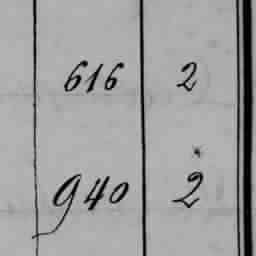 616 2
940 2